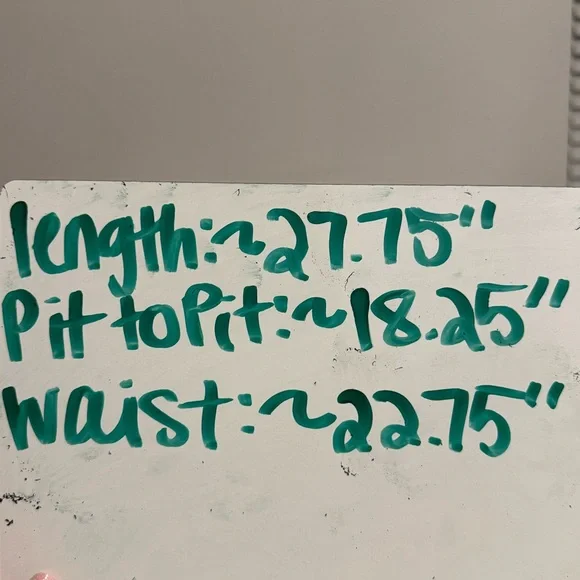 length:~27.75"
Pit to Pit:~18.25"
waist:~22.75"